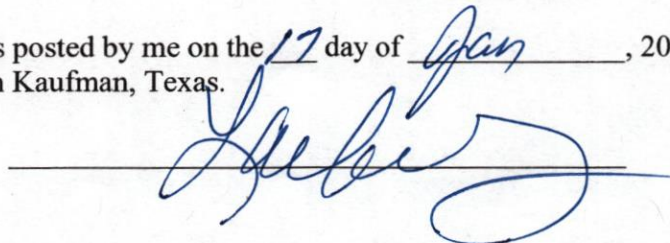 s posted by me on the 17 day of Jan, 20
n Kaufman, Texas.